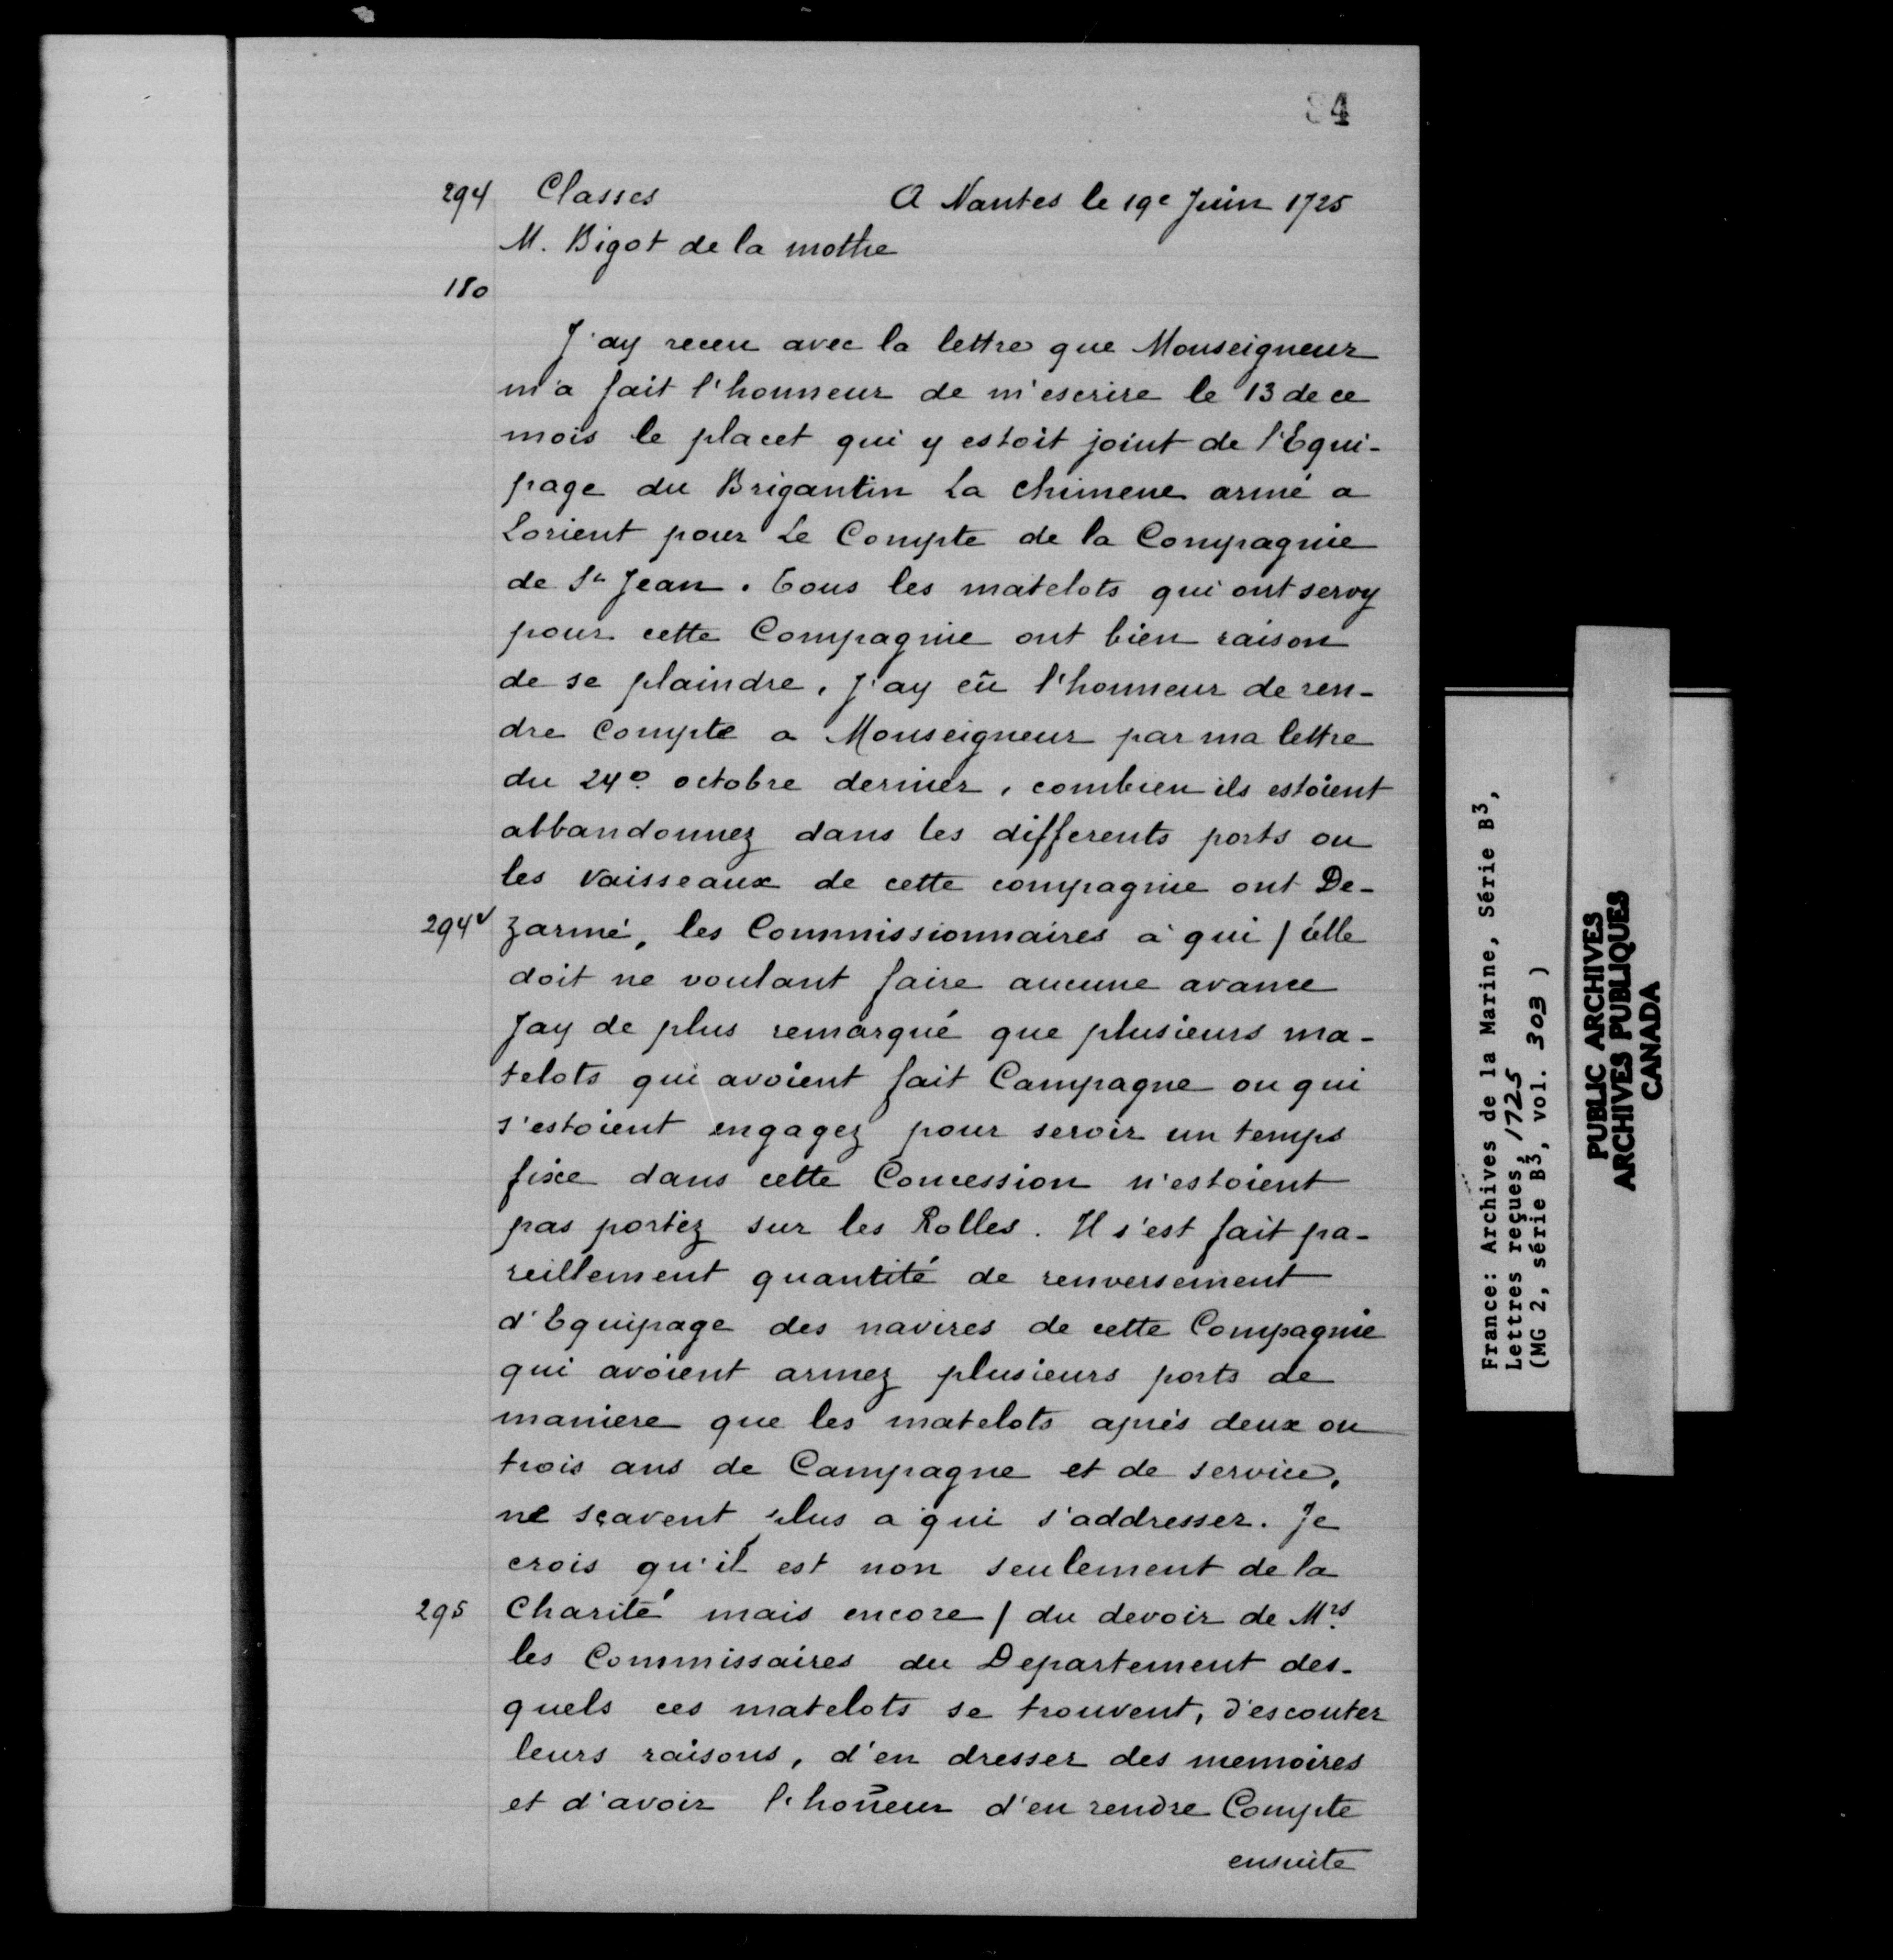 84
294 Classes A Nantes le 19e Juin 1725
M. Bigot de la mothe
180
J'ay receu avec la lettre que Monseigneur
m'a fait l'honneur de m'escrire le 13 de ce
mois le placet qui y estoit joint de l'Equi-
page du Brigantin La Chimene armé a
Lorient pour Le Compte de la Compagnie
de St Jean. Tous les matelots qui ont servy
pour cette Compagnie ont bien raison
de se plaindre, J'ay eû l'honneur de ren-
dre Compte a Monseigneur par ma lettre
du 24e octobre dernier, combien ils estoient
abbandonnez dans les differents ports ou
les Vaisseaux de cette compagnie ont De-
294v zarmé, les Commissionnaires à qui / élle
doit ne voulant faire aucune avance
Jay de plus remarqué que plusieurs ma-
telots qui avoient fait Campagne ou qui
s'estoient engagez pour servir un temps
fixe dans cette Concession n'estoient
pas portéz sur les Rolles. Il s'est fait pa-
reillement quantité de renversement
d'Equipage des navires de cette Compagnie
qui avoient armez plusieurs ports de
maniere que les matelots aprés deux ou
trois ans de Campagne et de service,
ne sçavent plus a qui s'addresser. Je
crois qu'il est non seulement de la
295 Charité mais encore / du devoir de Mrs
les Commissaires du Departement des-
quels ces matelots se trouvent, d'escouter
leurs raisons, d'en dresser des memoires
et d'avoir l'hoñeur d'en rendre Compte
ensuite
France: Archives de la Marine, Série B3,
Lettres reçues, 1725
(MG 2, série B3, vol. 303 )
PUBLIC ARCHIVES
ARCHIVES PUBLIQUES
CANADA